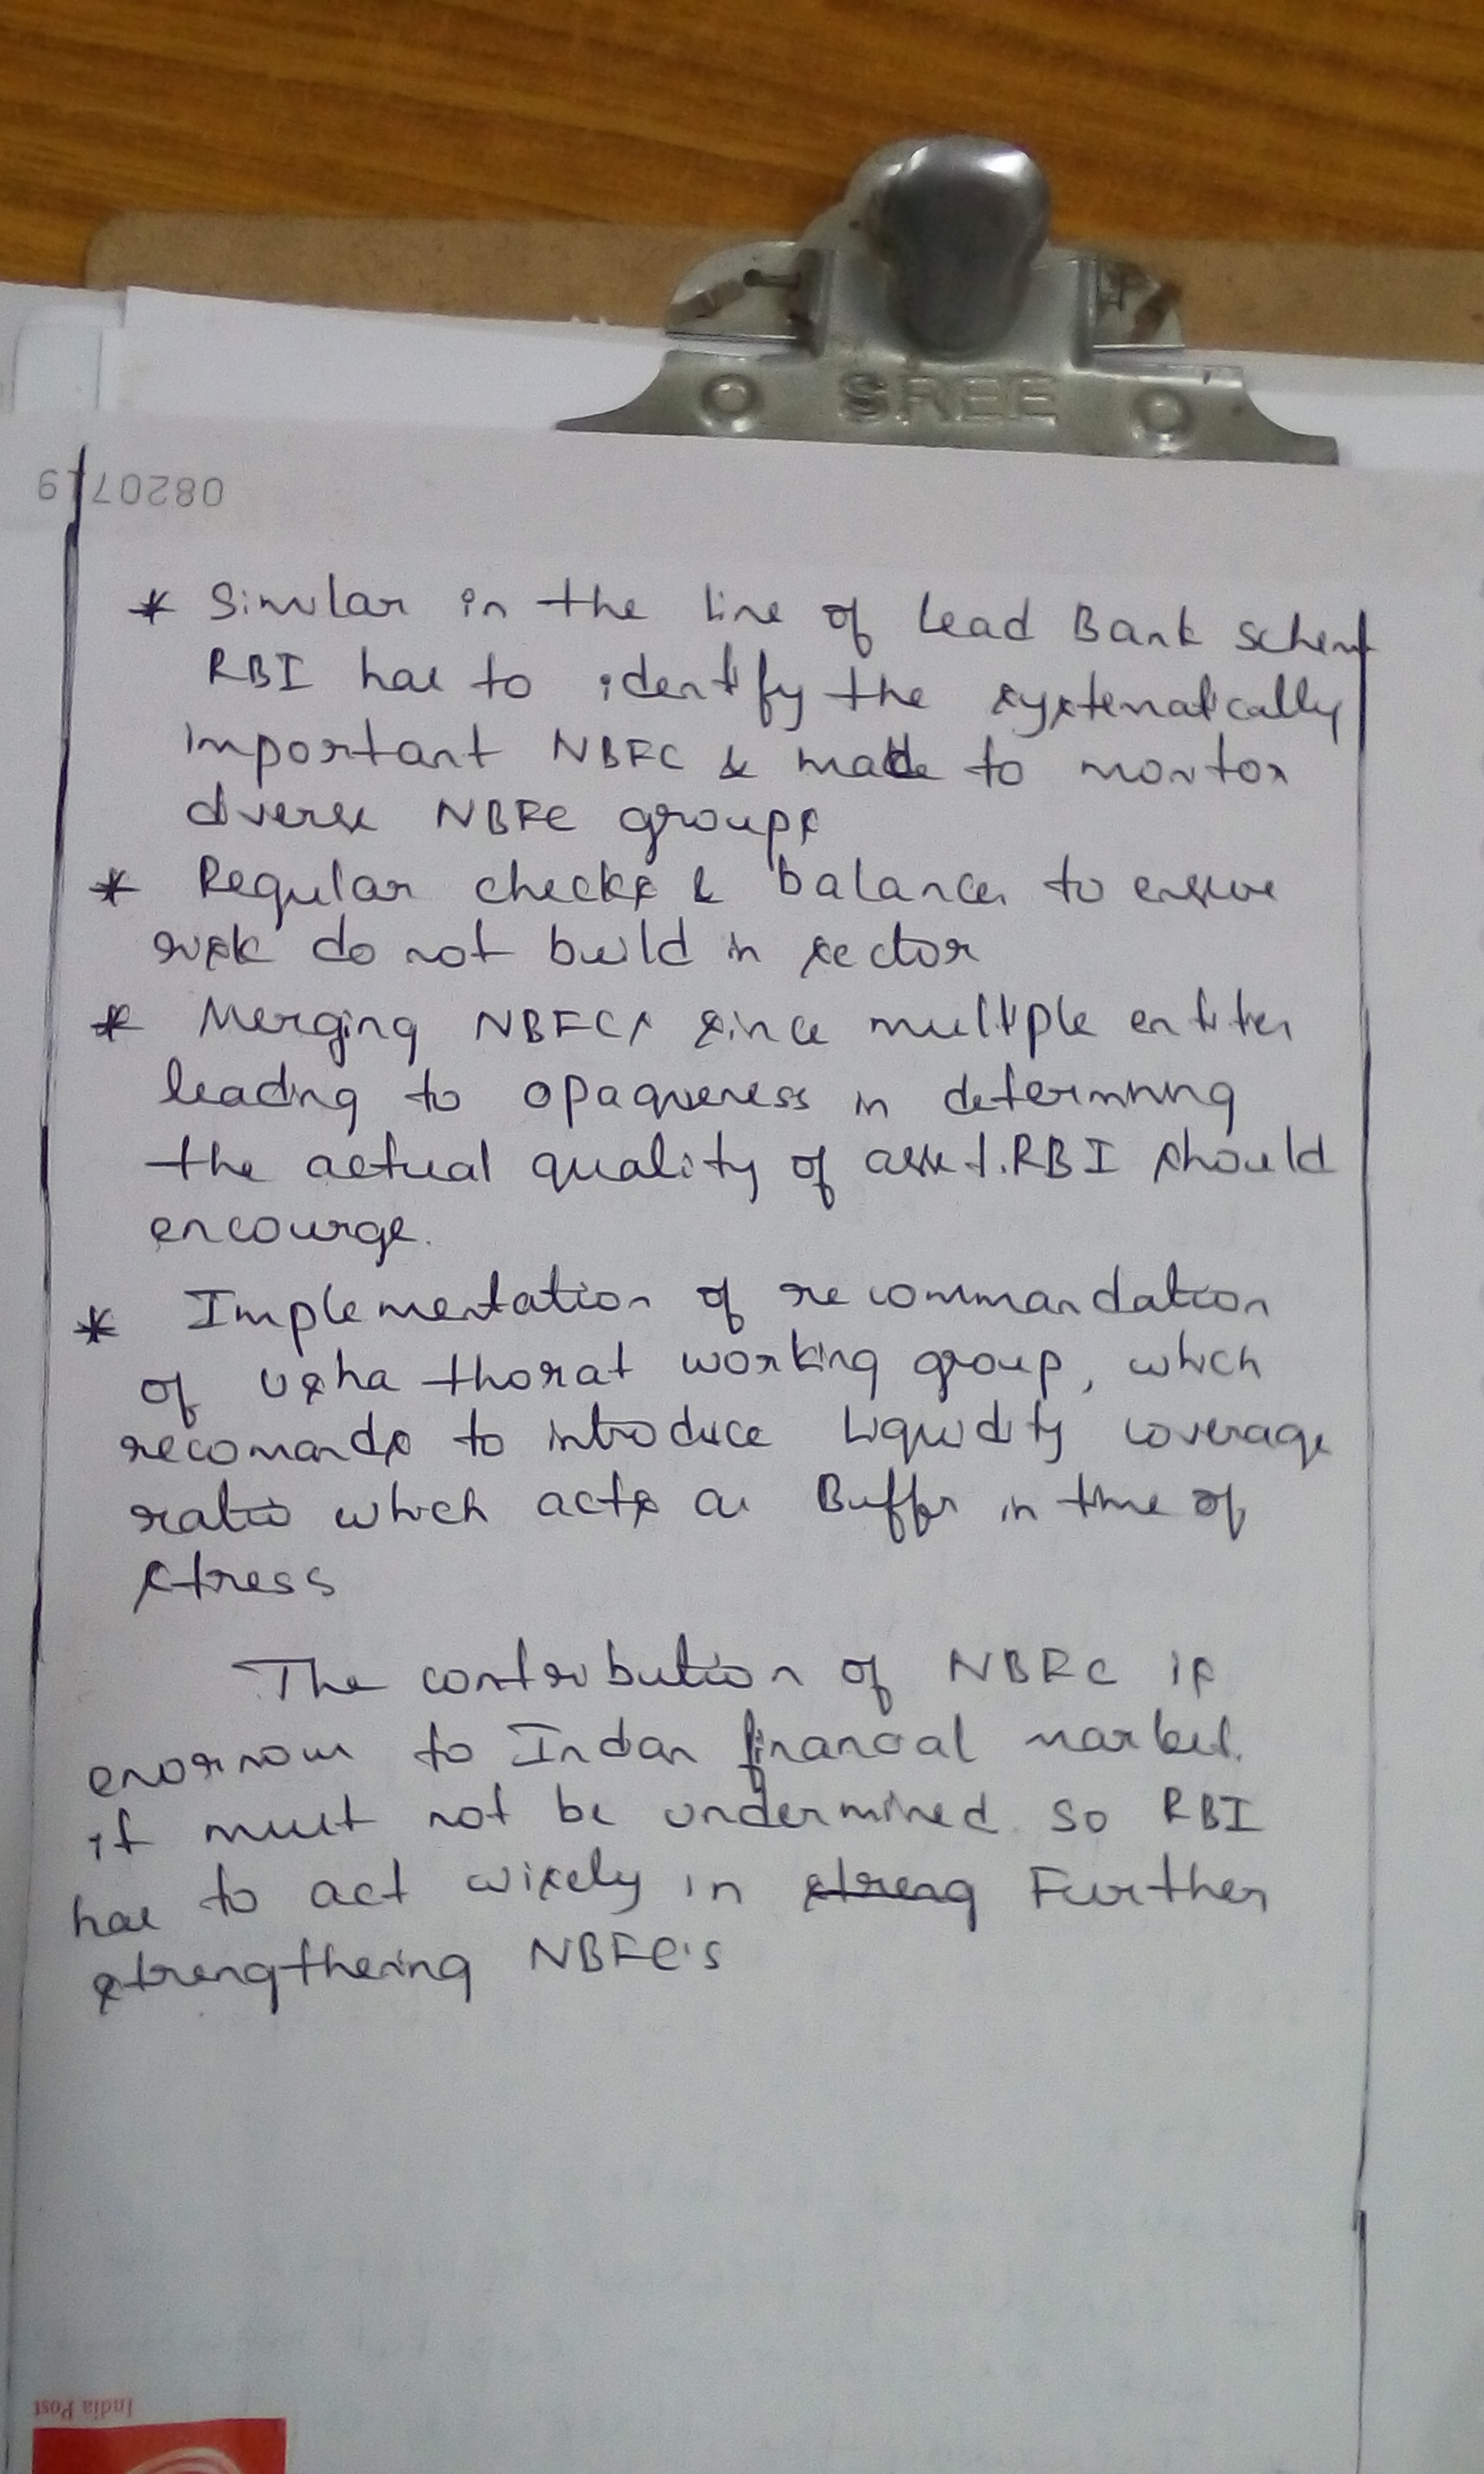 SREE
0820719
* Similar in the line of Lead Bank schem
RBI has to identify the systematically
important NBFC & made to montor
diverse NBFC groups
* Regular checks & balances to ensure
risk do not build in sector
* Merging NBFCs since multiple entities
leading to opaqueness in determining
the actual quality of asset. RBI should
encourge.
* Implementation of recommandation
of Usha thorat working group, which
recomands to introduce Liquidity coverage
ratio which acts as Buffer in time of
stress
The contribution of NBFC is
enormous to Indian financial market.
it must not be undermined. So RBI
has to act wisely in streng Further
strengthening NBFC's
India Post